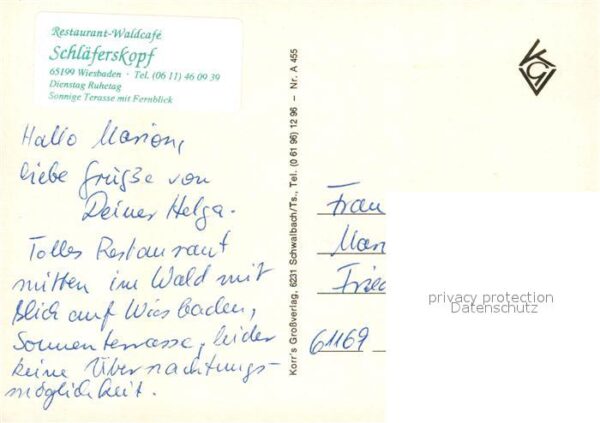 Restaurant-Waldcafé
Schläferskopf
65199 Wiesbaden · Tel. (06 11) 46 09 39
Dienstag Ruhetag
Sonnige Terasse mit Fernblick
Hallo Marion,
liebe Grüße von
Deiner Helga.
Tolles Restaurant
mitten im Wald mit
Blick auf Wiesbaden,
Sonnenterrasse, leider
keine Übernachtungs-
möglichkeit.
Korr's Großverlag, 6231 Schwalbach/Ts., Tel. (0 61 96) 12 96 – Nr. A 455
Frau
Mari
Fried
61169
privacy protection
Datenschutz